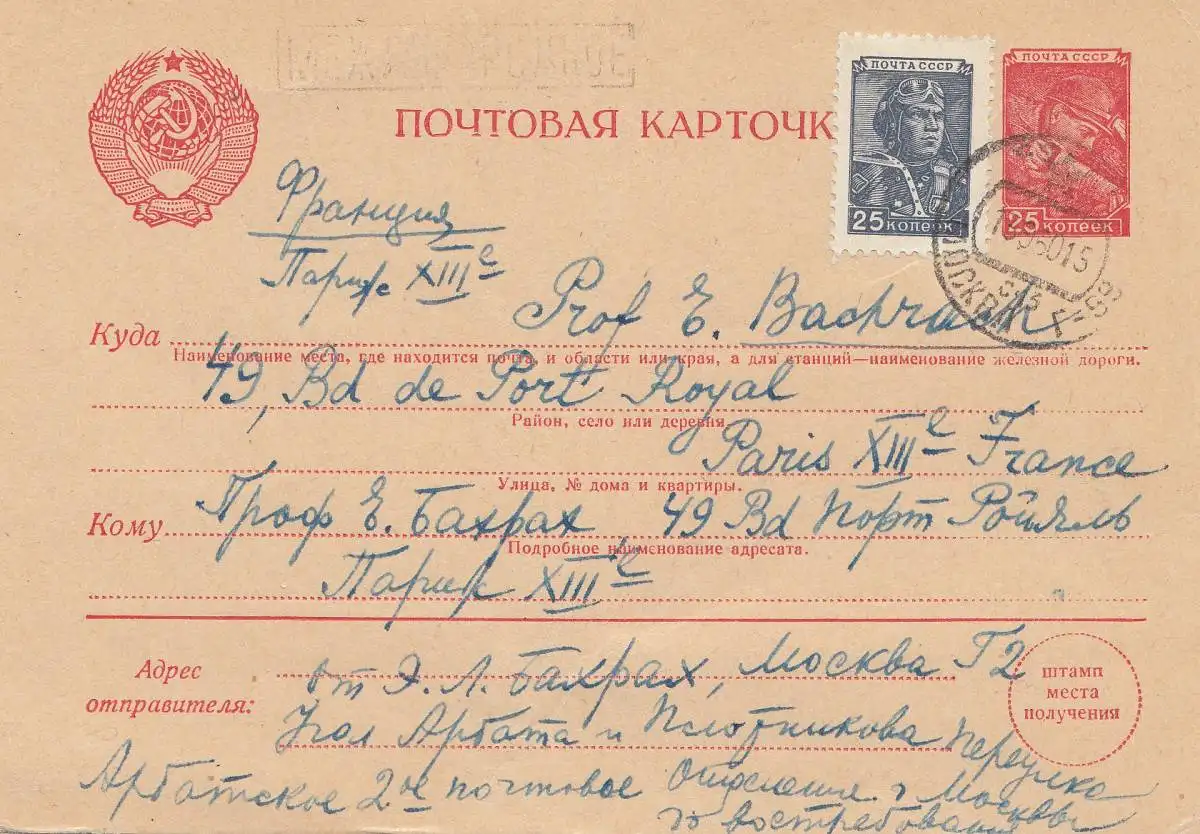 ПОЧТА СССР
ПОЧТА СССР
ПОЧТОВАЯ КАРТОЧК
25 КОПЕЕК
25 КОПЕЕК
МОСКВА
Франция
Париж XIIIe
Prof E. Bachrach
Куда
Наименование места, где находится почта, и области или края, а для станций—наименование железной дороги.
49, Bd de Port Royal
Район, село или деревня.
Paris XIIIe France
Улица, № дома и квартиры.
Кому Проф Е. Бахрах 49 Bd Порт Ройяль
Подробное наименование адресата.
Париж XIIIe
Адрес отправителя:
от Э. Л. Бахрах, Москва Г2
Угол Арбата и Плотникова переулка
Арбатское 2ое почтовое отделение г Москвы
до востребования
штамп
места
получения